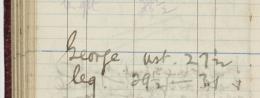 George ust. 27½
leg. 29½ — 31